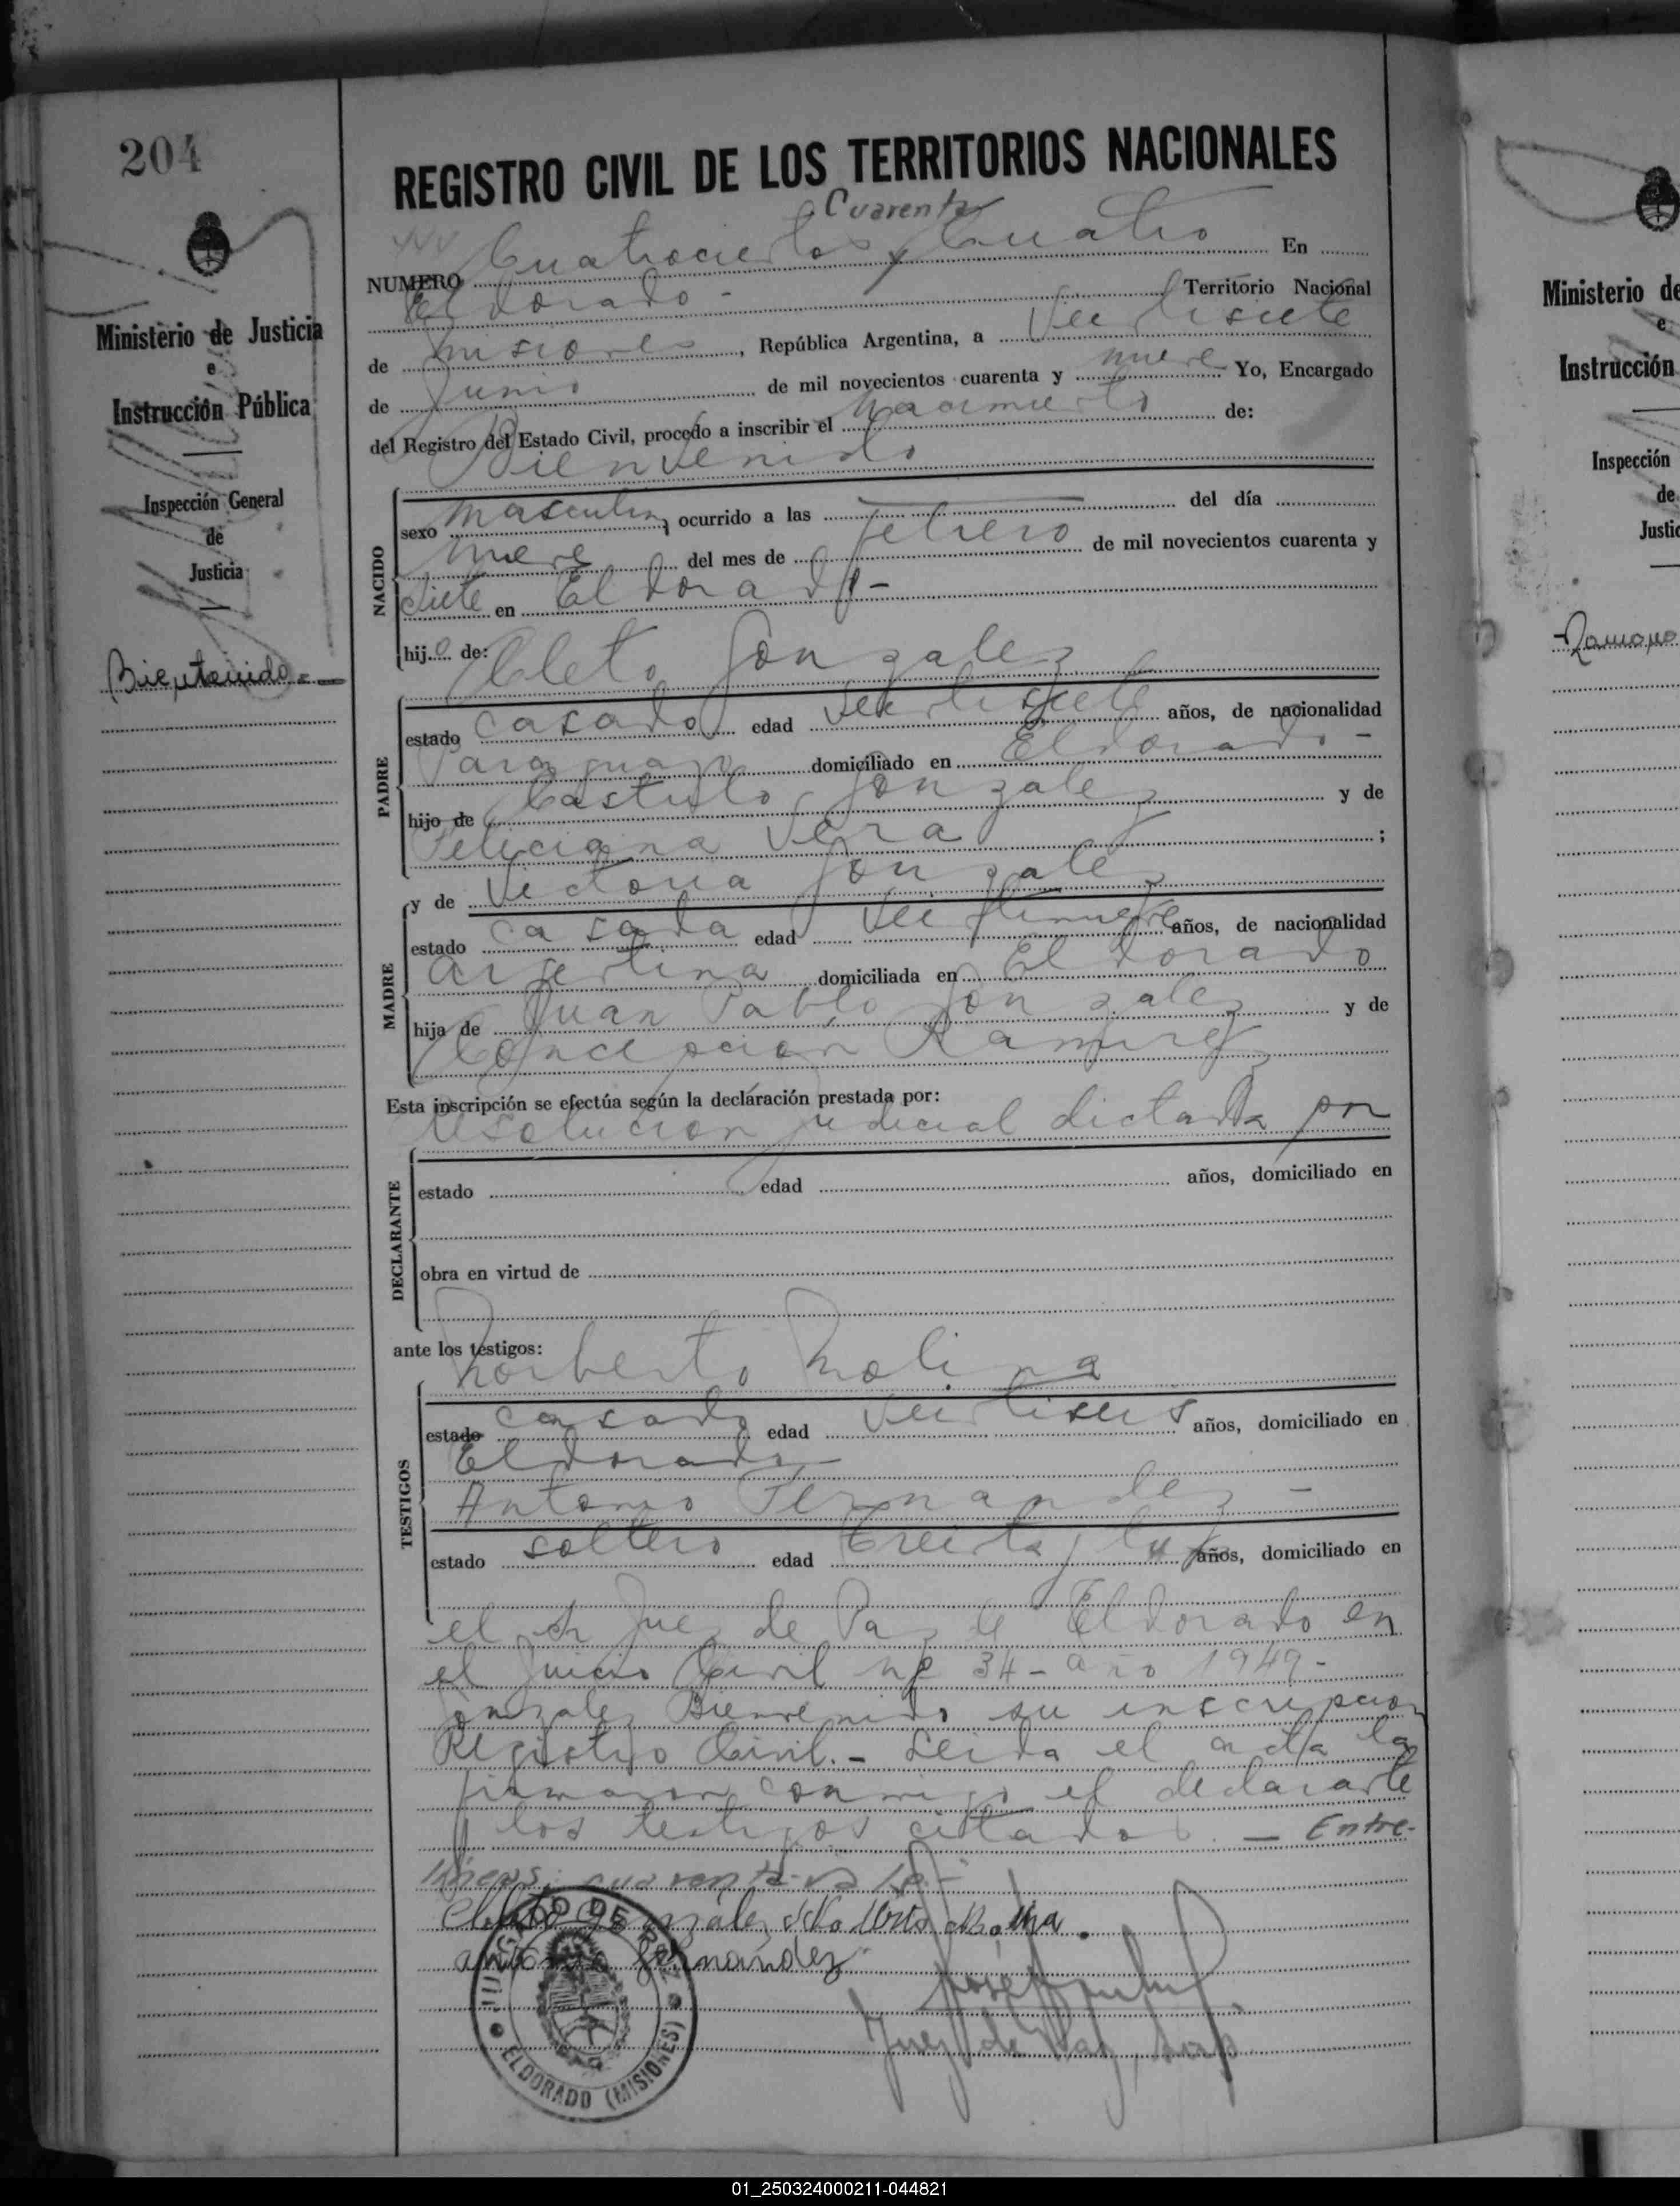 204
REGISTRO CIVIL DE LOS TERRITORIOS NACIONALES
Cuarenta
NUMERO Cuatrocientos y Cuatro En
Eldorado - Territorio Nacional
de Misiones, República Argentina, a Veintisiete
de Junio de mil novecientos cuarenta y nueve Yo, Encargado
del Registro del Estado Civil, procedo a inscribir el Nacimiento de:
Bienvenido
NACIDO
sexo masculino, ocurrido a las del día
nueve del mes de febrero de mil novecientos cuarenta y
siete en Eldorado -
hijo de: Cleto Gonzalez
PADRE
estado casado edad Veintisiete años, de nacionalidad
Paraguayo domiciliado en Eldorado -
hijo de Castulo Gonzalez y de
Feliciana Vera ;
y de Victoria Gonzalez
MADRE
estado casada edad Veintinueve años, de nacionalidad
argentina domiciliada en Eldorado
hija de Juan Pablo Gonzalez y de
Concepcion Ramirez
Esta inscripción se efectúa según la declaración prestada por:
resolucion judicial dictada por
DECLARANTE
estado edad años, domiciliado en
obra en virtud de
ante los testigos:
Norberto Molina
TESTIGOS
estado casado edad Veintiseis años, domiciliado en
Eldorado -
Antonio Fernandez -
estado soltero edad treinta y años, domiciliado en
el Sr Juez de Paz de Eldorado en
el Juicio Civil nº 34 - año 1949 -
Gonzalez Bienvenido su inscripcion
Registro Civil. - Leida el acta la
firmaron conmigo el declarante
los testigos citados. - Entre-
lineas: cuarenta - vale -
Cleto Gonzalez Norberto Molina.
Antonio Fernandez
Juez de Paz
JUZGADO DE PAZ
ELDORADO (MISIONES)
Ministerio de Justicia
e
Instrucción Pública
Inspección General
de
Justicia
Bienvenido
Ministerio de
e
Instrucción
Inspección
de
Justic
Ramona
01_250324000211-044821